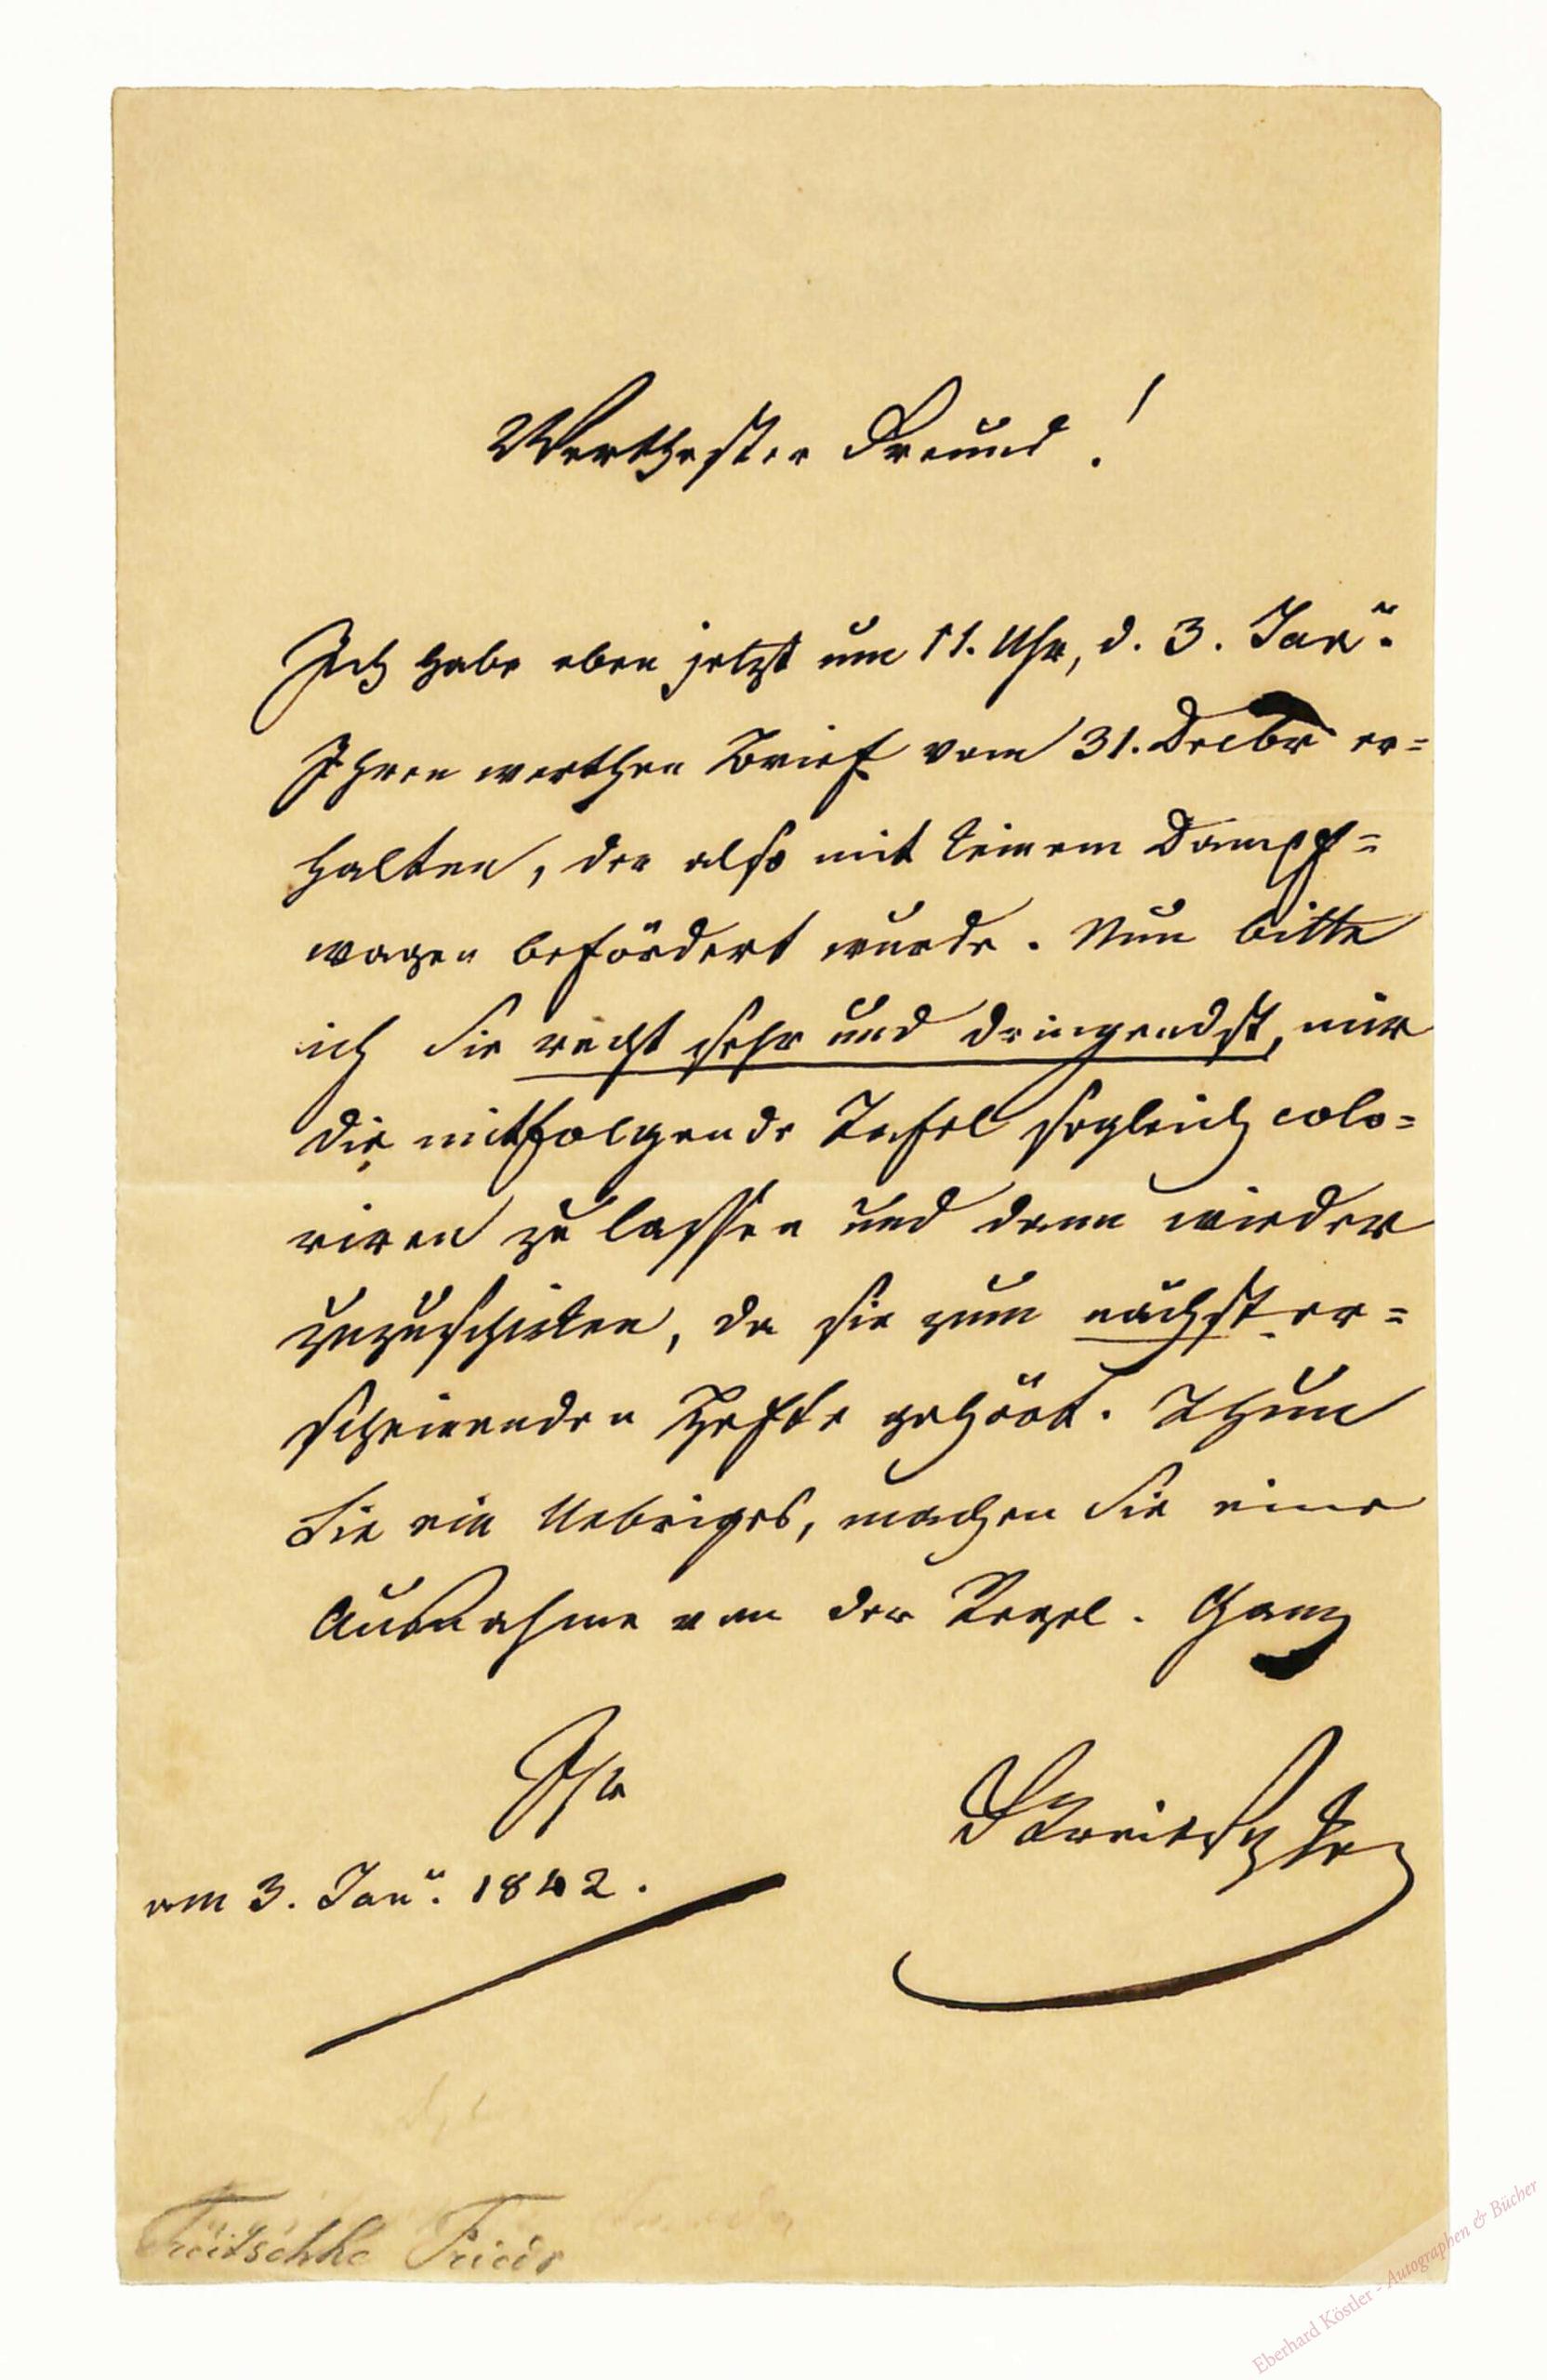 Werthester Freund!
Ich habe eben jetzt um 11. Uhr, d. 3. Janr.
Ihren werthen Brief vom 31. Decbr er=
halten, der also mit keinem Dampf=
wagen befördert wurde. Nun bitte
ich Sie recht sehr und dringendst, mir
die mitfolgende Tafel sogleich colo=
riren zu lassen und dann wieder
zuzuschicken, da sie zum nächster=
scheinenden Hefte gehört. Thun
Sie ein Uebriges, machen Sie eine
Ausnahme von der Regel. Ganz
Ihr
FTreitschke
am 3. Janr. 1842.
Treitschke Friedr
Eberhard Köstler - Autographen & Bücher